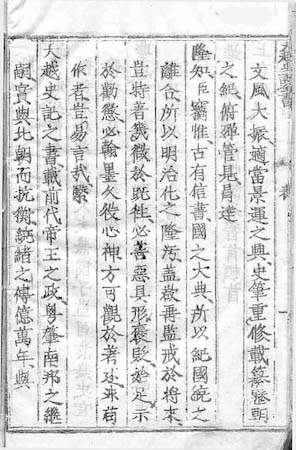 文風大振適當景運之興史筆重修載纂盛朝
之紀俯殫管見達
隆知臣竊惟古有信書國之大典所以紀國統之
離合所以明治化之隆污蓋欲垂監戒於將來
豈特著幾微於既往必善惡具形褒貶始足示
於勸懲必翰墨久役心神方可觀於著述苟
者豈易言哉繄
大越史記之書載前代帝王之政粵肇南邦之繼
嗣實與北朝而抗衡統緒之傳億萬年與